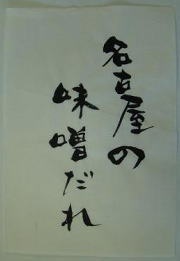 名古屋の
味噌だれ